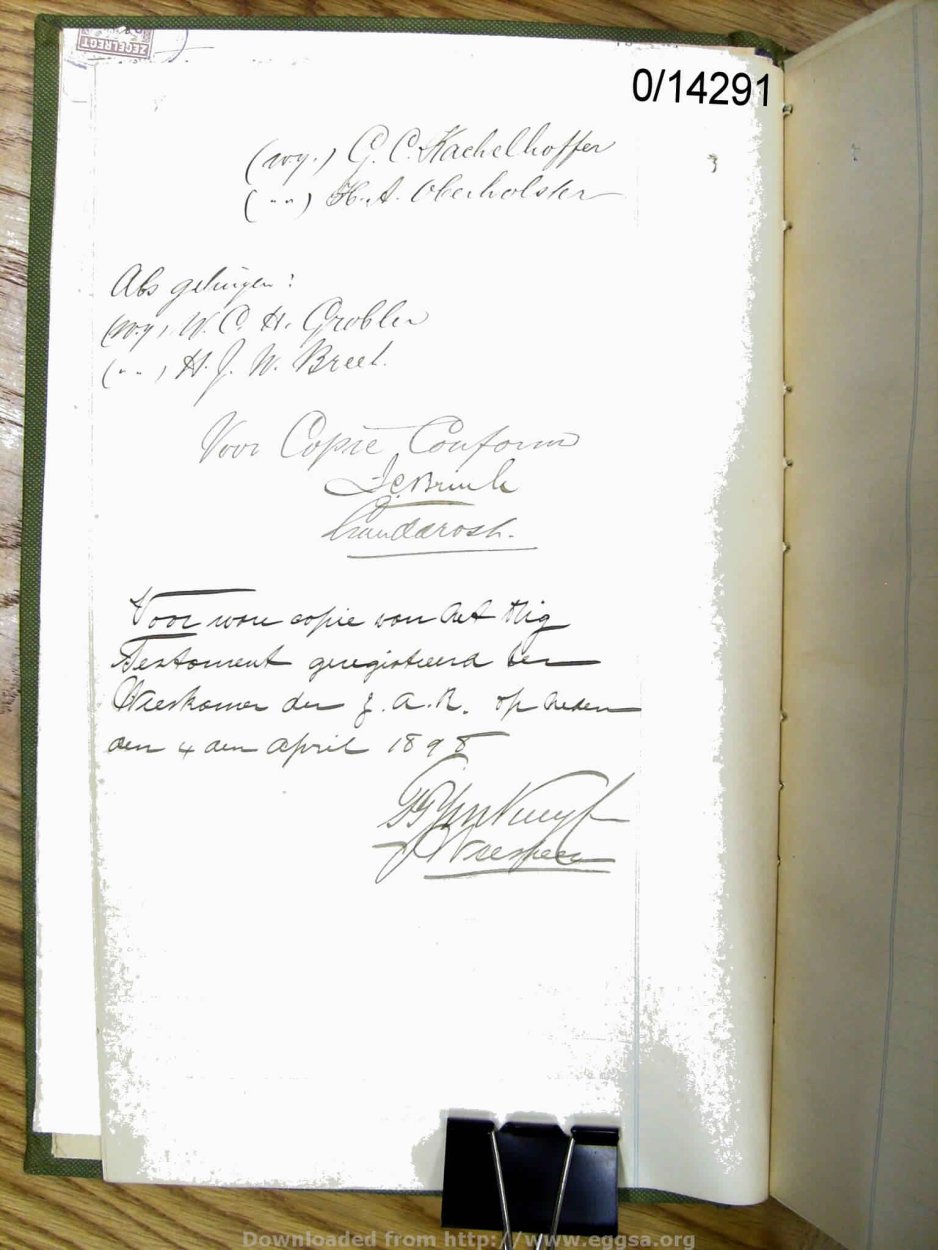 ZEGELREGT
0/14291
3
(wg.) G. C. Kachelhoffer
( „ ) H. A. Oberholster
Als getuigen :
(wg.) W. C. H. Grobler
( „ ) H. J. W. Breet.
Voor Copie Conform
Landdrost.
Voor ware copie van het Orig
Testament geregistreerd ter
Weeskamer der Z. A. R. op heden
den 4 den April 1898
Weesheer
Downloaded from http://www.eggsa.org